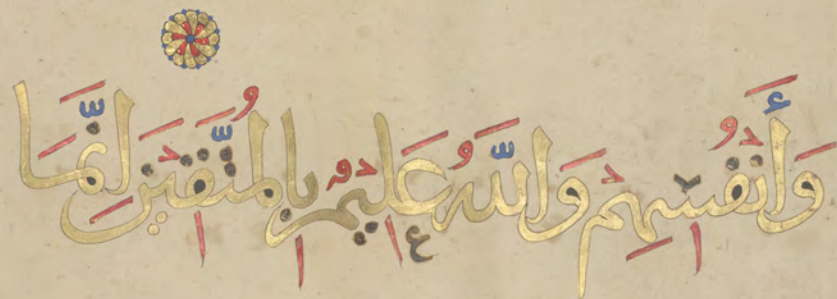 وَأَنفُسِهِمْ وَاللَّهُ عَلِيمٌ بِالْمُتَّقِينَ إِنَّمَا